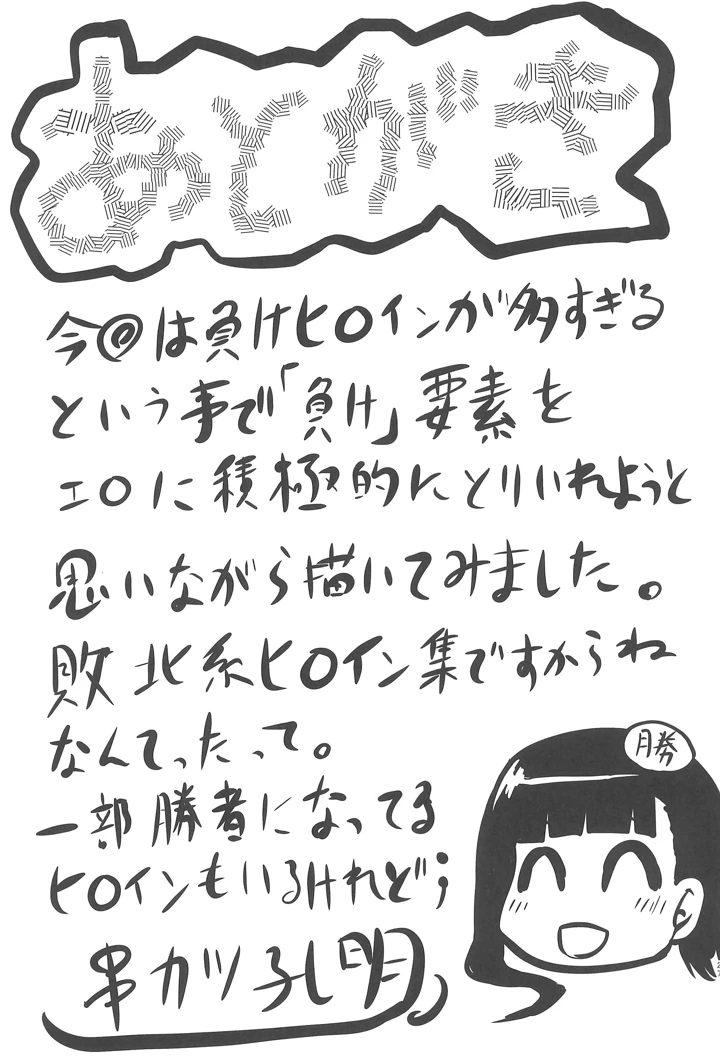 あとがき
今回は負けヒロインが多すぎる
という事で「負け」要素を
エロに積極的にとりいれようと
思いながら描いてみました。
敗北系ヒロイン集ですからね
なんてったって。
一部勝者になってる
ヒロインもいるけれど；
勝
串カツ孔明